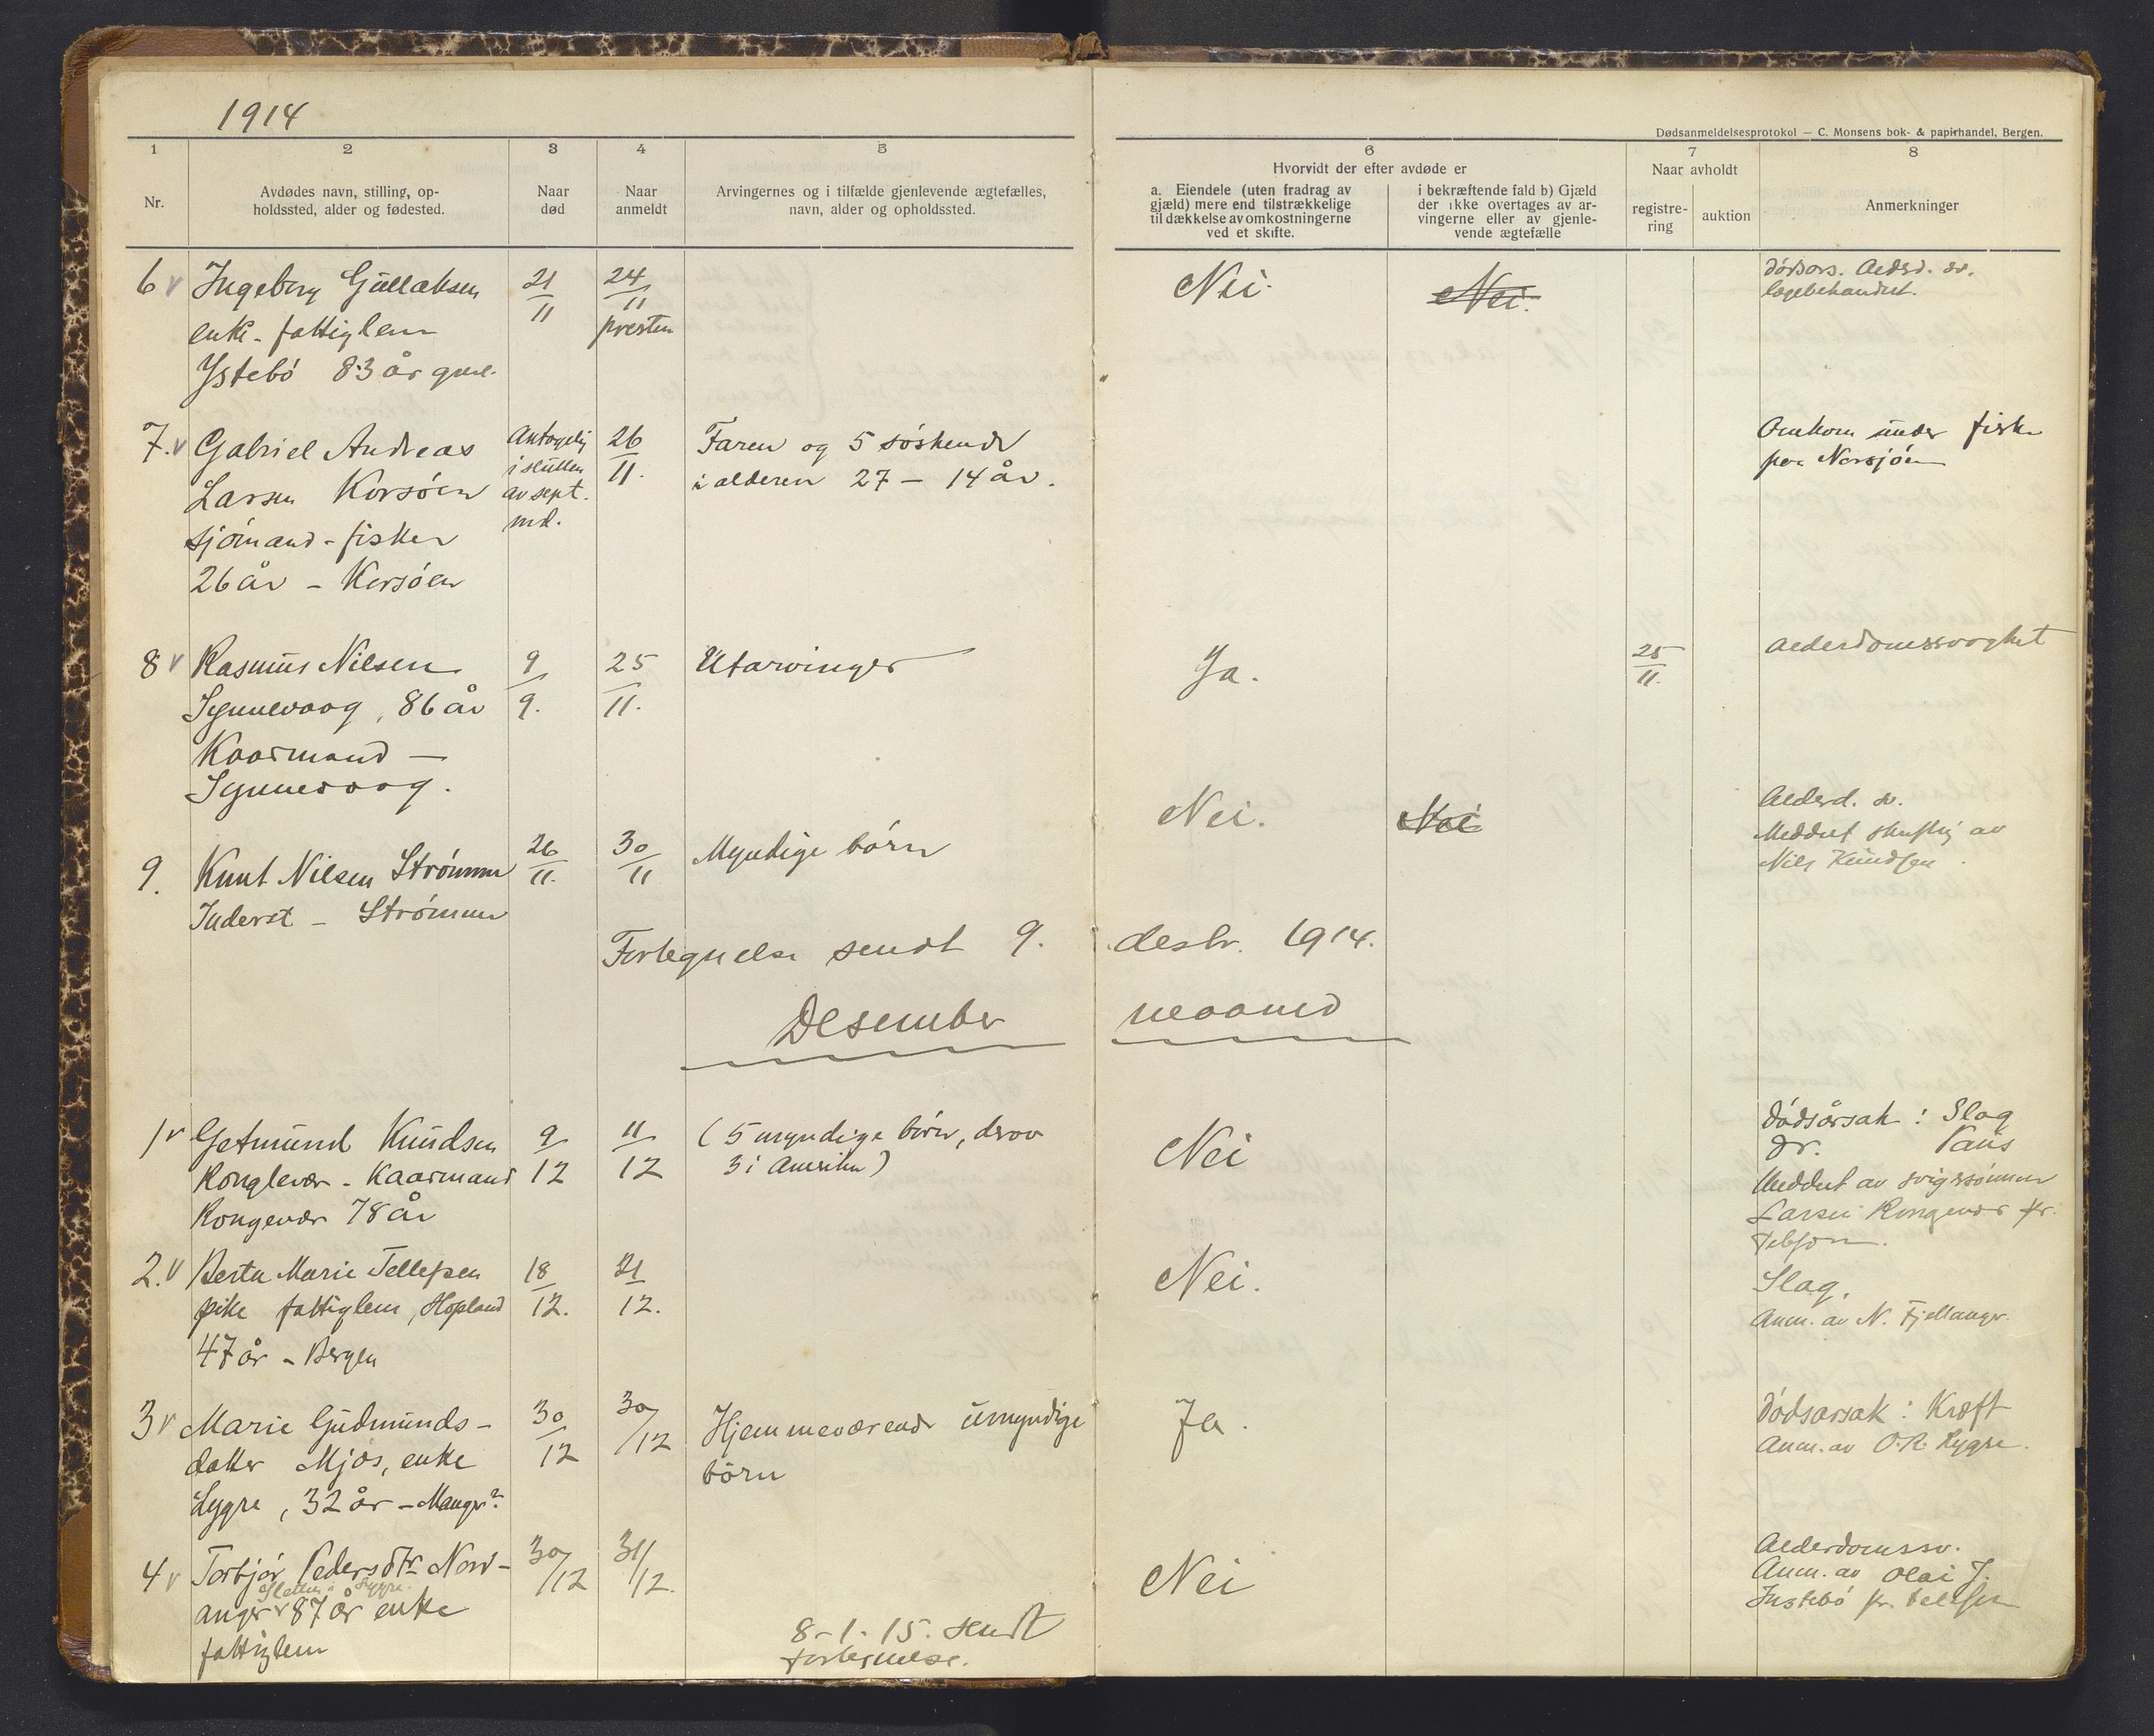 1914
Dødsanmeldelsesprotokol — C. Monsens bok- & papirhandel, Bergen.
1
2
3
4
5
6
7
8
Nr.
Avdødes navn, stilling, op-
holdssted, alder og fødested.
Naar
død
Naar
anmeldt
Arvingernes og i tilfælde gjenlevende ægtefælles,
navn, alder og opholdssted.
Hvorvidt der efter avdøde er
a. Eiendele (uten fradrag av
gjæld) mere end tilstrækkelige
til dækkelse av omkostningerne
ved et skifte.
i bekræftende fald b) Gjæld
der ikke overtages av ar-
vingerne eller av gjenle-
vende ægtefælle
Naar avholdt
registre-
ring
auktion
Anmerkninger
6 v Ingeborg Gullaksen
enke - fattiglem
Ystebö 83 år
21/11
24/11
presten
Nei.
Nei.
dödsårs. Alderd. sv.
lægebehandlet.
7. v Gabriel Andreas
Larsen Korsöen
sjömand - fisker
26 år - Korsöen
Antagelig
i slutten
av sept.
md.
26
11.
Faren og 5 söskende
i alderen 27 - 14 år.
Omkom under fiske
paa Norsjöen
8 v Rasmus Nilsen
Synnevaag, 86 år
Kaarmand -
Synnevaag.
9/9.
25/11.
Utarvinger
Ja.
25/11.
Alderdomssvaghet
9. Knut Nilsen Strömmen
Inderst - Strömmen
26/11.
30/11
Myndige börn
Nei.
Nei
Alderd. sv.
Meddelt skriftlig av
Nils Knudsen.
Fortegnelse sendt 9. desbr. 1914.
Desember maaned
1 v Getmund Knudsen
Konglevær - Kaarmand
Rongevær 78 år
9/12
11/12
(5 myndige börn, derav
3 i Amerika)
Nei
Dödsårsak: Slag
dr.
Meddelt av svigersönnen
Larsen Rongevær pr.
Telefon.
2. v Berta Marie Tellefsen
pike fattiglem, Hopland
47 år - Bergen
18/12.
21/12.
Nei.
Slag.
Anm. av N. Fjellanger.
3 v Marie Gudmunds-
datter Mjös, enke
Lygre, 32 år - Manger?
30/12
30/12
Hjemmeværende umyndige
börn
Ja.
Dödsarsak: Kræft
Anm. av O. R. Lygre.
4 v Torbjör Pedersdtr Nord-
Sletten i Lygre.
anger v 87 år enke
fattiglem
30/12
31/12.
Nei
Alderdomssv.
Anm. av Olai J.
Instebö pr. telefon
8-1-15. sendt
fortegnelse.